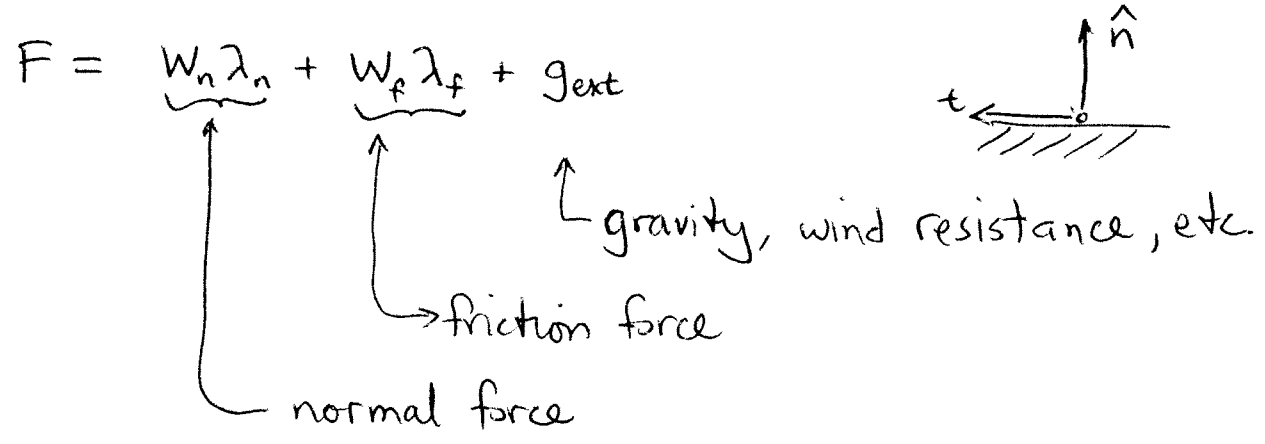 F = Wₙλₙ + W_f λ_f + g_ext
n̂
t
gravity, wind resistance, etc.
friction force
normal force